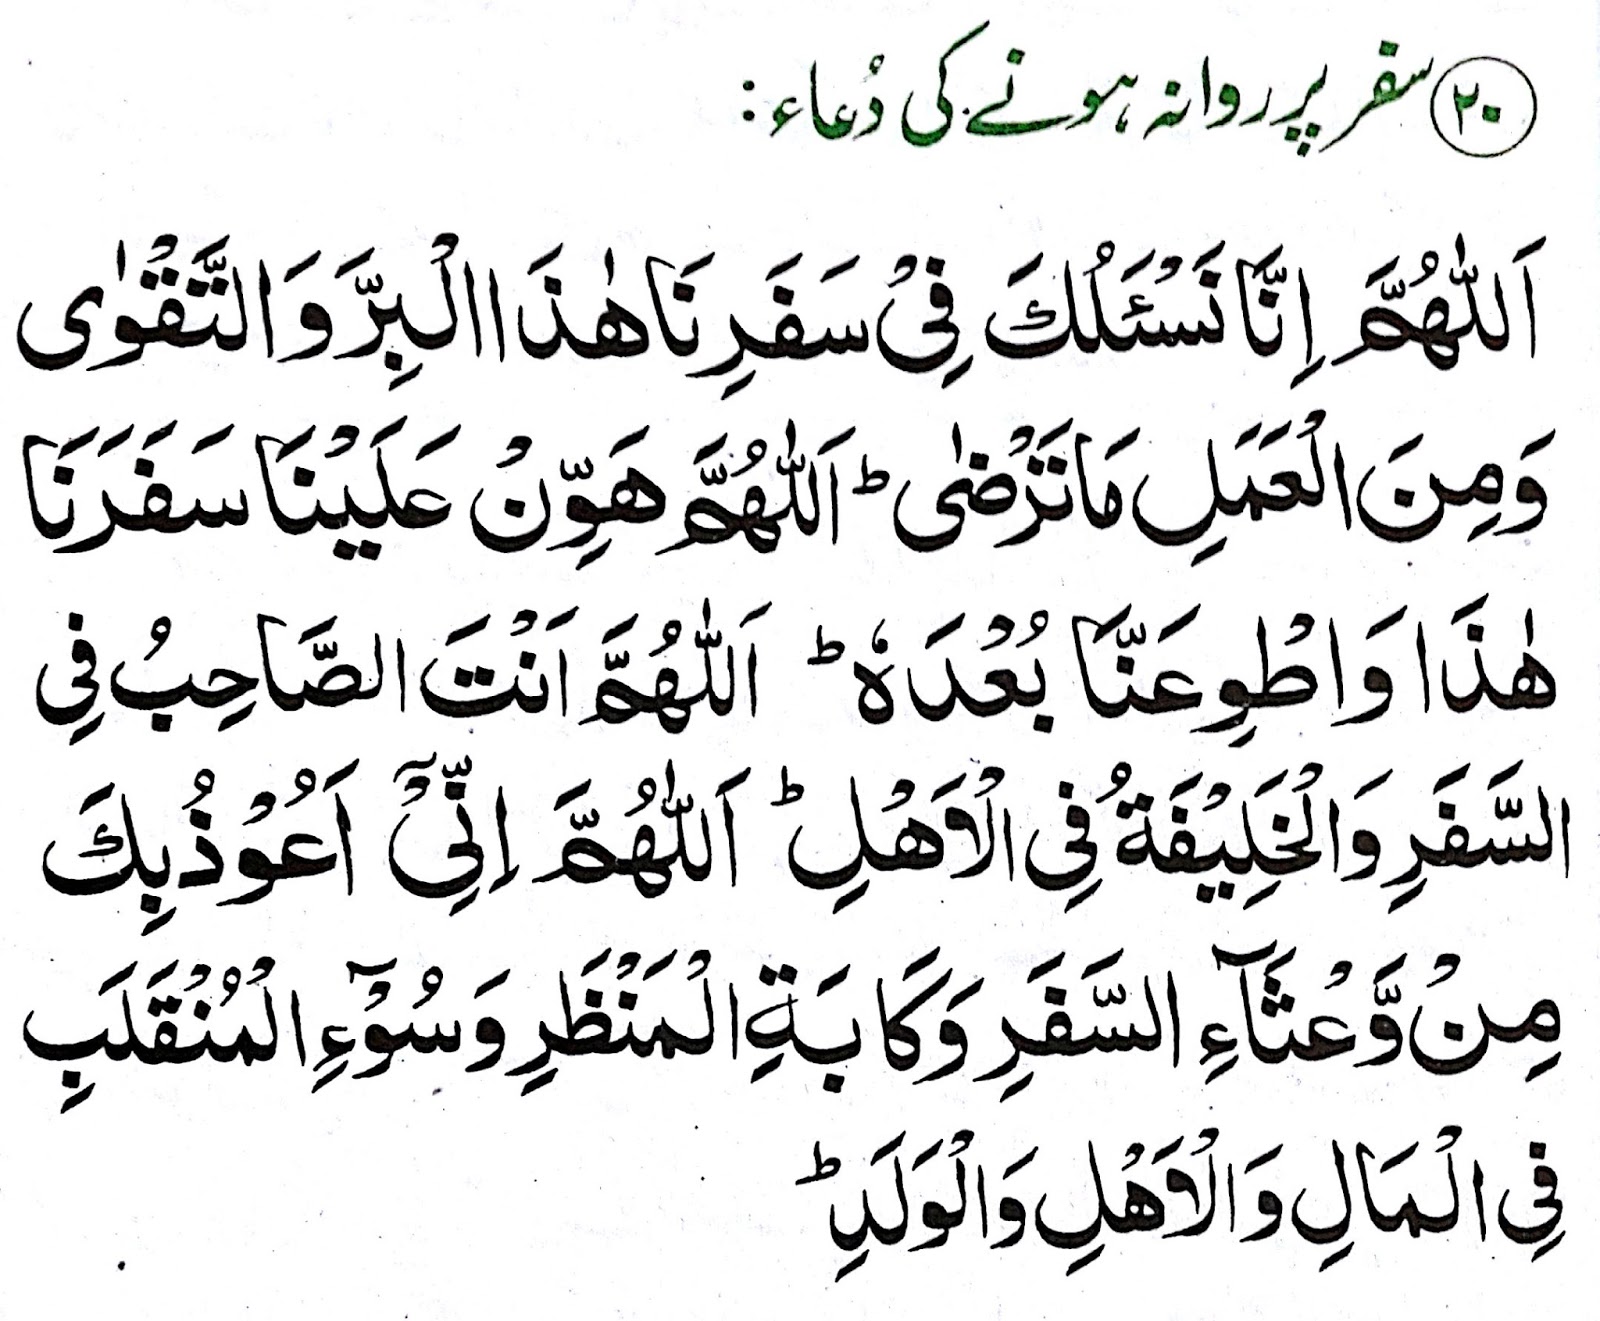 ۲۰ سفر پر روانہ ہونے کی دُعاء:
اَللّٰهُمَّ اِنَّا نَسْئَلُكَ فِیْ سَفَرِنَا هٰذَا الْبِرَّ وَالتَّقْوٰی
وَمِنَ الْعَمَلِ مَا تَرْضٰی ؕ اَللّٰهُمَّ هَوِّنْ عَلَیْنَا سَفَرَنَا
هٰذَا وَاطْوِعَنَّا بُعْدَهٗ ؕ اَللّٰهُمَّ اَنْتَ الصَّاحِبُ فِی
السَّفَرِ وَالْخَلِیْفَةُ فِی الْاَهْلِ ؕ اَللّٰهُمَّ اِنِّیْۤ اَعُوْذُبِكَ
مِنْ وَّعْثَآءِ السَّفَرِ وَكَابَةِ الْمَنْظَرِ وَسُوْٓءِ الْمُنْقَلَبِ
فِی الْمَالِ وَالْاَهْلِ وَالْوَلَدِ ؕ